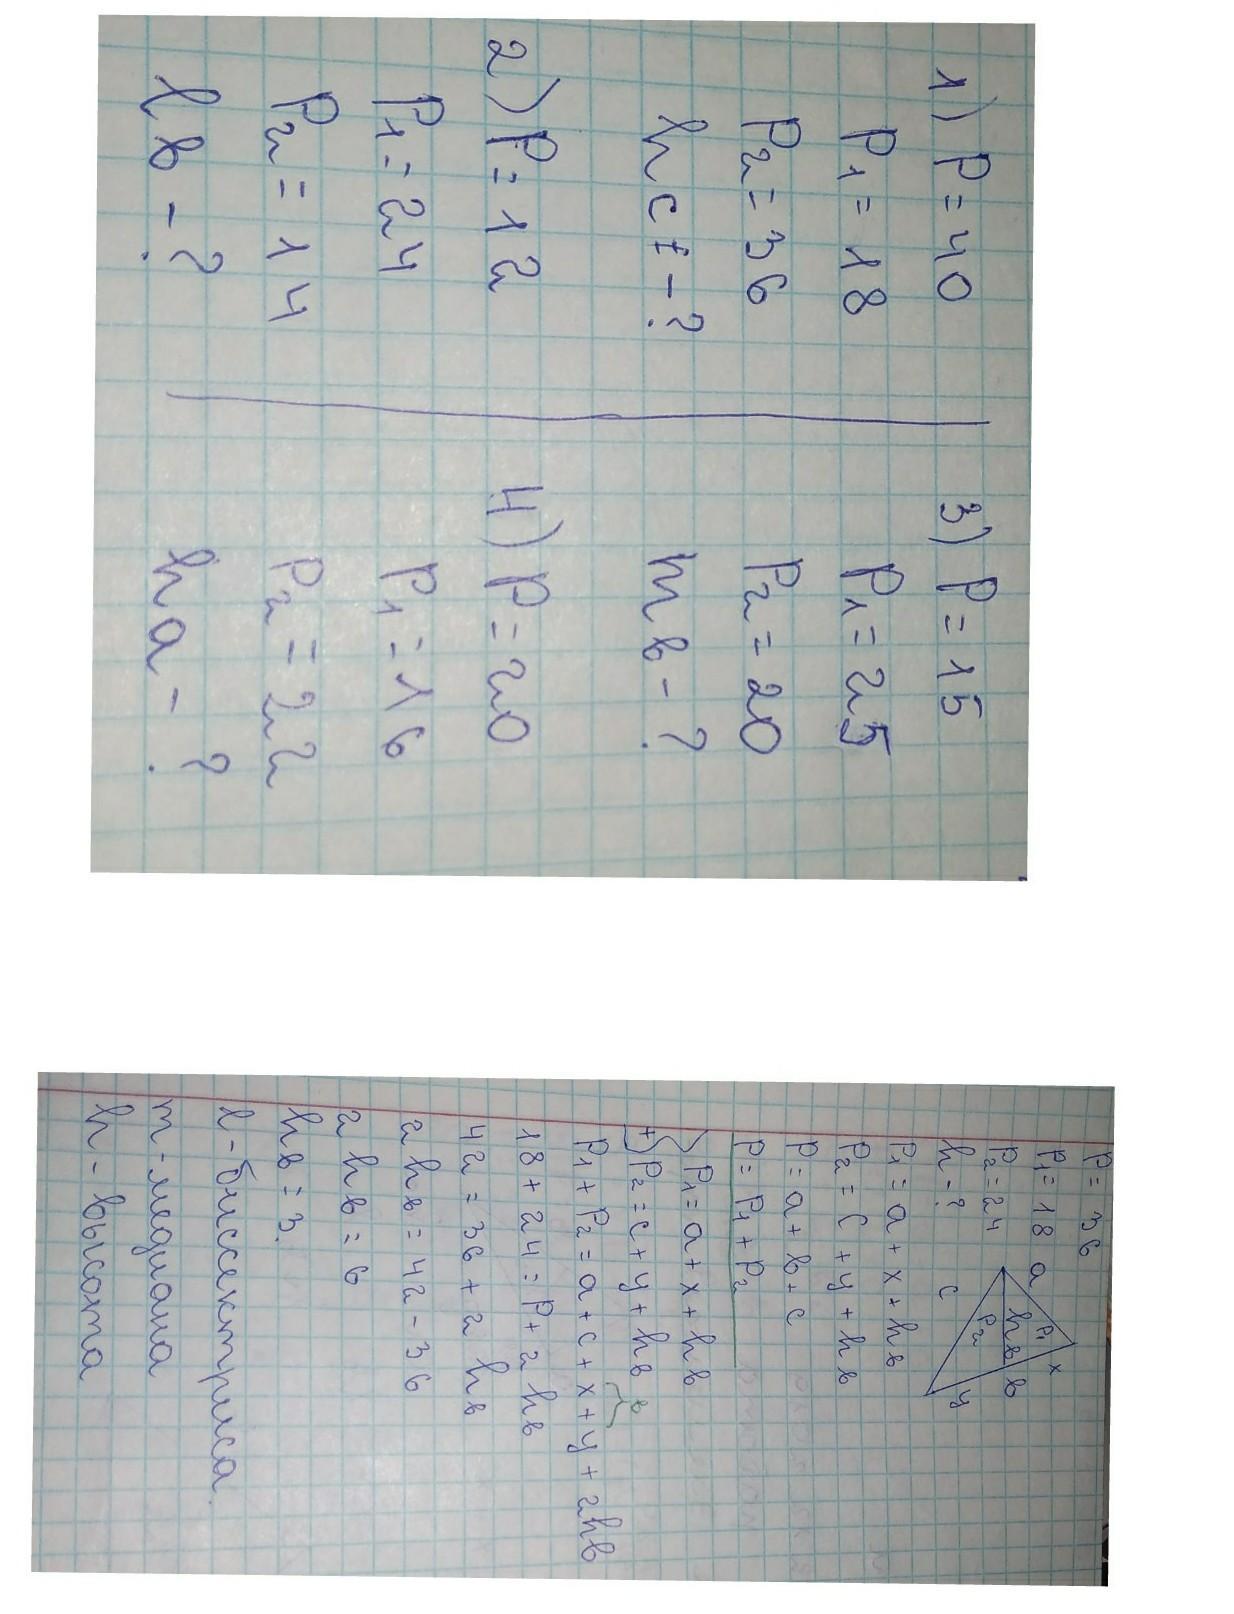 1) P = 40
P1 = 18
P2 = 36
hc - ?
2) P = 12
P1 = 24
P2 = 14
lв - ?
3) P = 15
P1 = 25
P2 = 20
mв - ?
4) P = 20
P1 = 16
P2 = 22
ha - ?
P = 36
P1 = 18
P2 = 24
h - ?
a
P1
x
hв
в
P2
c
y
P1 = a + x + hв
P2 = c + y + hв
P = a + в + c
P = P1 + P2
P1 = a + x + hв
+) P2 = c + y + hв
в
P1 + P2 = a + c + x + y + 2hв
18 + 24 = P + 2 hв
42 = 36 + 2 hв
2 hв = 42 - 36
2 hв = 6
hв = 3.
l - биссектриса.
m - медиана
h - высота